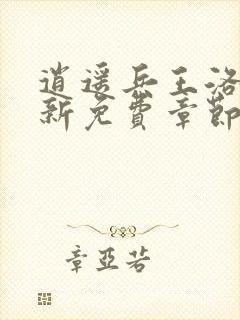 逍遥兵王洛
新免費章節
章亞若